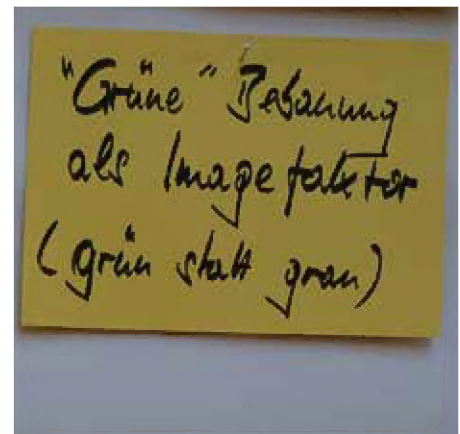 "Grüne" Bebauung
als Imagefaktor
(grün statt grau)